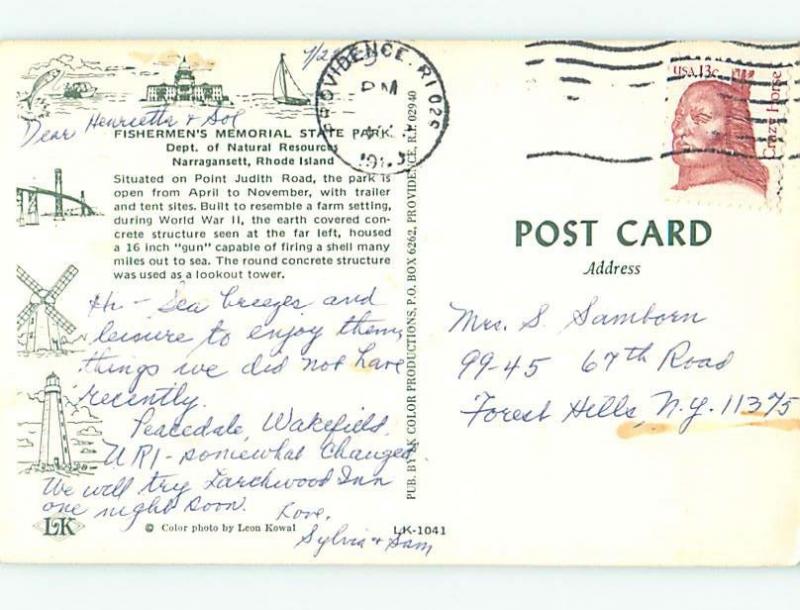 Dear Henrietta & Sol
FISHERMEN'S MEMORIAL STATE PARK
Dept. of Natural Resources
Narragansett, Rhode Island
Situated on Point Judith Road, the park is
open from April to November, with trailer
and tent sites. Built to resemble a farm setting,
during World War II, the earth covered con-
crete structure seen at the far left, housed
a 16 inch "gun" capable of firing a shell many
miles out to sea. The round concrete structure
was used as a lookout tower.
Hi - Sea breezes and
leisure to enjoy them,
things we did not have
recently.
Peacedale, Wakefield,
URI - somewhat changed.
We will try Larchwood Inn
one night soon.
Love,
Sylvia & Sam
LK
© Color photo by Leon Kowal
LK-1041
PUB. BY LK COLOR PRODUCTIONS, P.O. BOX 6262, PROVIDENCE, R.I. 02940
PROVIDENCE, RI 029
PM
USA 13c
Crazy Horse
POST CARD
Address
Mrs. S. Samborn
99-45 67th Road
Forest Hills, N.Y. 11375